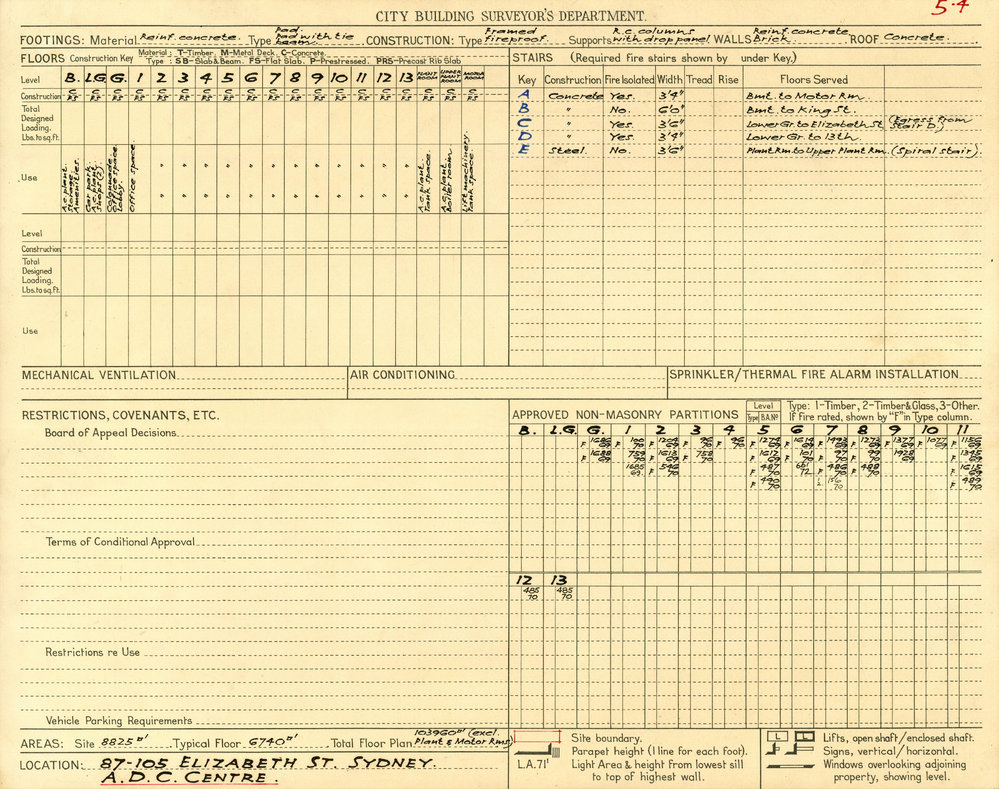 5.4
CITY BUILDING SURVEYOR'S DEPARTMENT.
FOOTINGS: Material Reinf. concrete. Type Pad. Pad with tie beam. CONSTRUCTION: Type Framed fireproof. Supports R.C. columns with drop panel WALLS Reinf. concrete Brick. ROOF Concrete.
FLOORS Construction Key Material: T-Timber, M-Metal Deck, C-Concrete.
Type: SB-Slab & Beam. FS-Flat Slab. P-Prestressed. PRS-Precast Rib Slab
Level B. L.G. G. 1 2 3 4 5 6 7 8 9 10 11 12 13 PLANT ROOM UPPER PLANT ROOM MOTOR ROOM
Construction C FS C FS C FS C FS C FS C FS C FS C FS C FS C FS C FS C FS C FS C FS C FS C FS C FS C FS C FS
Total Designed Loading. Lbs. to sq. ft.
Use
A.c. plant. Storage. Amenities.
Car park. A.c. plant. Shops (2).
Colonnade. Office space. Lobby.
Office space.
" " " " " " " " " " " "
" " " " " " " " " " " "
A.c. plant. Tank space.
A.c. plant. Boiler room.
Lift machinery. Tank space.
Level
Construction
Total Designed Loading. Lbs. to sq. ft.
Use
STAIRS (Required fire stairs shown by under Key.)
Key Construction Fire Isolated Width Tread Rise Floors Served
A Concrete Yes. 3'4" Bmt. to Motor Rm.
B " No. 6'0" Bmt. to King St.
C " Yes. 3'6" Lower Gr. to Elizabeth St. (Egress from Stair D.)
D " Yes. 3'4" Lower Gr. to 13th.
E Steel. No. 3'6" Plant Rm. to Upper Plant Rm. (Spiral stair).
MECHANICAL VENTILATION
AIR CONDITIONING
SPRINKLER/THERMAL FIRE ALARM INSTALLATION
RESTRICTIONS, COVENANTS, ETC.
Board of Appeal Decisions
Terms of Conditional Approval
Restrictions re Use
Vehicle Parking Requirements
APPROVED NON-MASONRY PARTITIONS
Level
Type B.A.Nº
Type: 1-Timber, 2-Timber & Glass, 3-Other.
If fire rated, shown by "F" in Type column.
B. L.G. G. 1 2 3 4 5 6 7 8 9 10 11
F 1686/69 F 100/70 F 1204/69 F 96/70 F 96/70 F 1274/69 F 1614/69 F 1493/69 F 1273/69 F 1377/69 F 1077/69 F 1156/69
F 1688/69 759/70 F 1613/69 F 758/70 F 1612/69 F 101/70 F 97/70 F 99/70 F 1928/69 F 1345/69
1685/69 F 546/70 F 487/70 661/72 F 486/70 F 488/70 F 1615/69
F 490/70 156/70 F 489/70
12 13
485/70 485/70
AREAS: Site 8825 □' Typical Floor 6740 □' Total Floor Plan 103960 □' (excl. Plant & Motor Rms)
LOCATION: 87-105 ELIZABETH ST. SYDNEY.
A.D.C. CENTRE.
Site boundary.
Parapet height (1 line for each foot).
L.A. 71' Light Area & height from lowest sill
to top of highest wall.
L L Lifts, open shaft/enclosed shaft.
Signs, vertical/horizontal.
Windows overlooking adjoining
property, showing level.